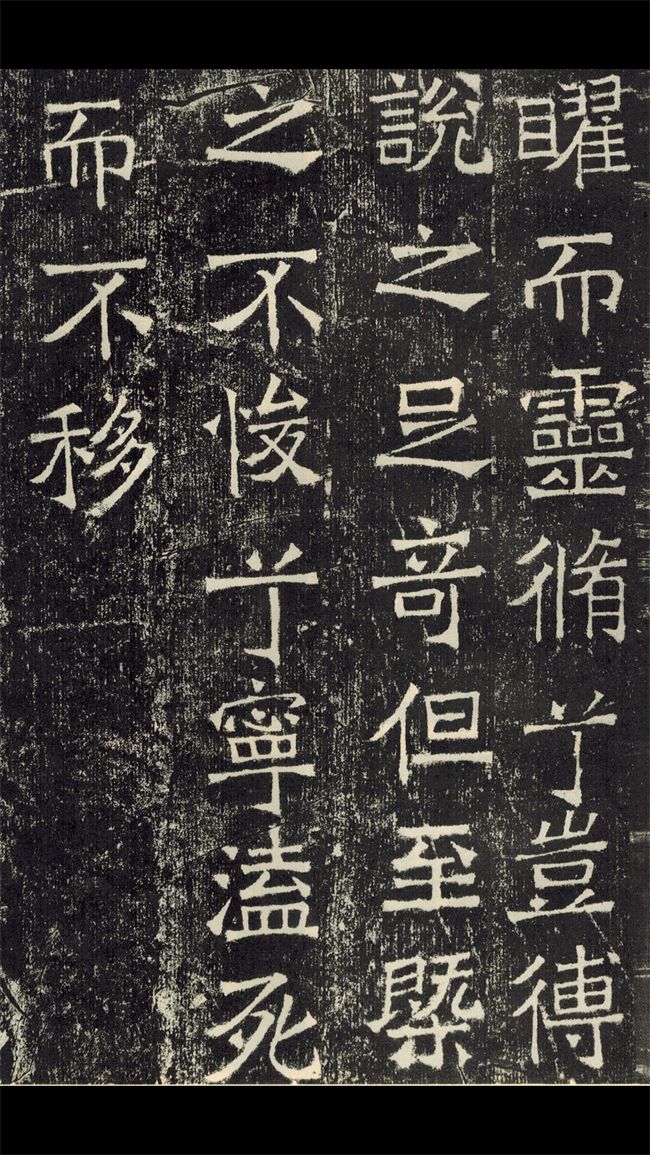 矅而靈脩兮豈傅
說之足奇但至槩
之不悛兮寧溘死
而不移